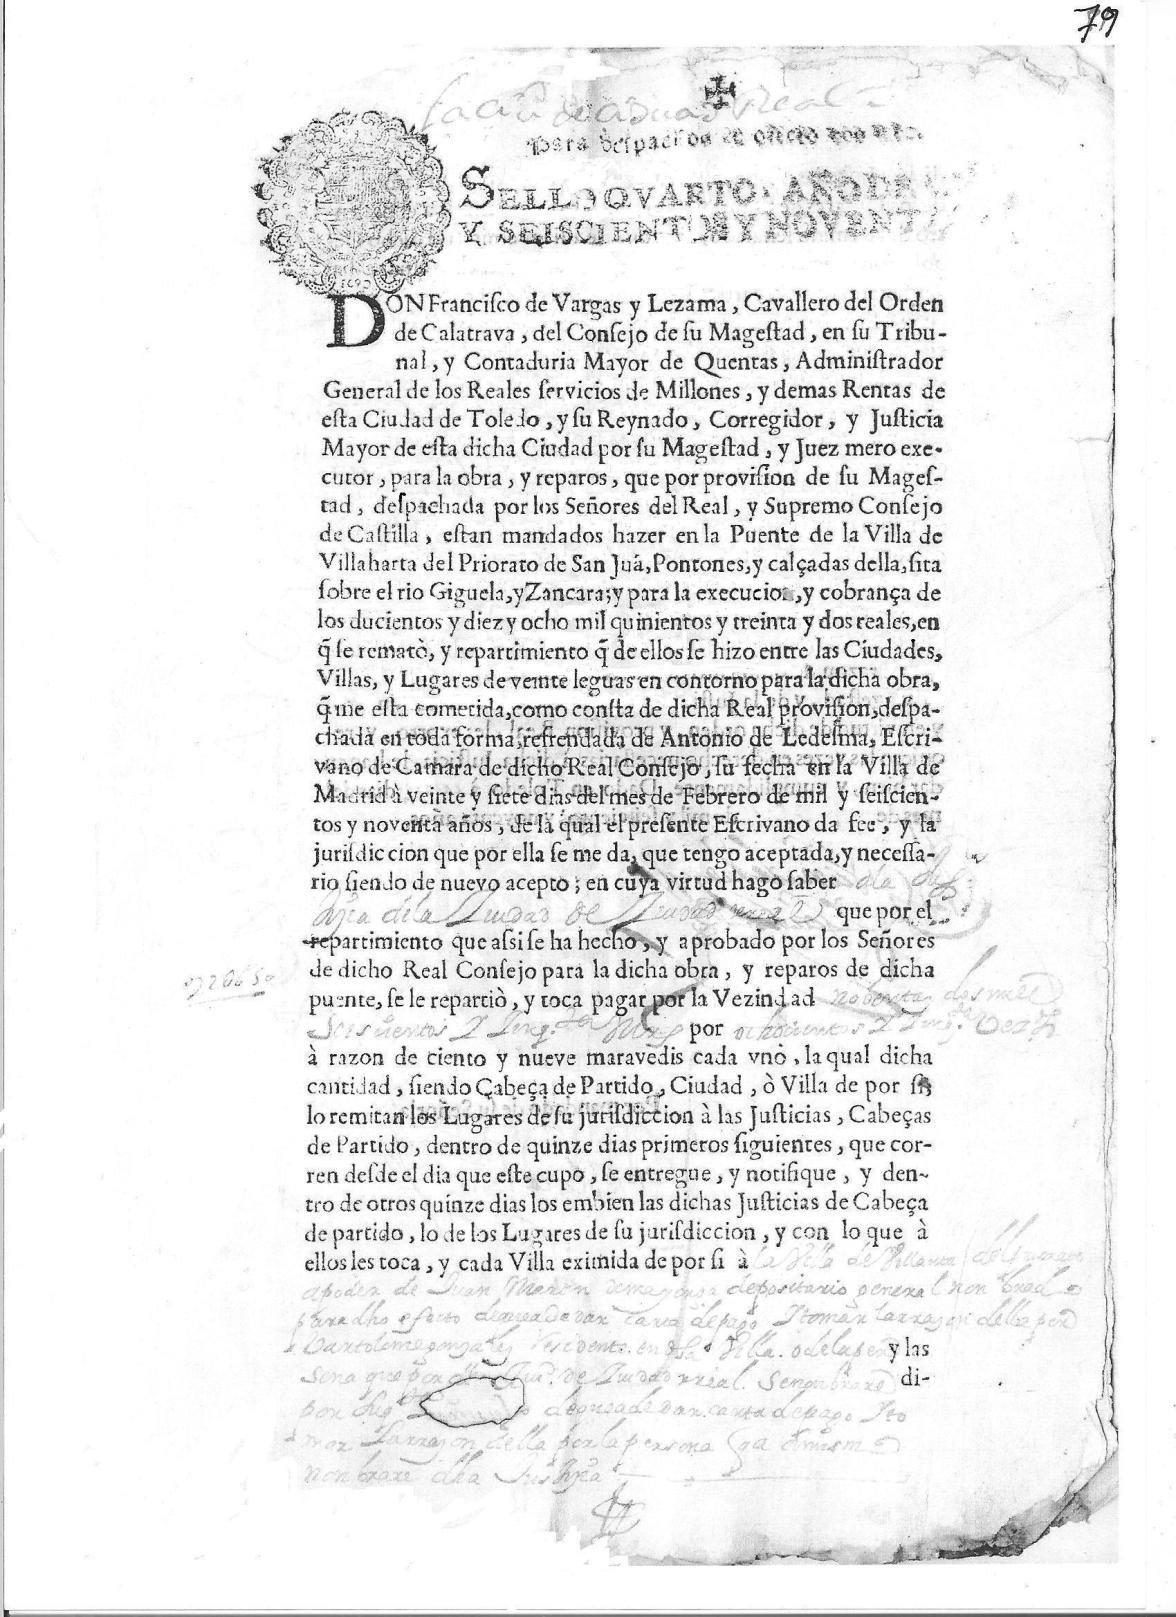 79
la ciu de ciudad Real
Para despachos de oficio dos mrs.
SELLO QVARTO, AÑO DE
Y SEISCIENTOS Y NOVENTA
1690
DON Franciſco de Vargas y Lezama, Cavallero del Orden
de Calatrava, del Conſejo de ſu Mageſtad, en ſu Tribu-
nal, y Contaduria Mayor de Quentas, Adminiſtrador
General de los Reales ſervicios de Millones, y demas Rentas de
eſta Ciudad de Toledo, y ſu Reynado, Corregidor, y Juſticia
Mayor de eſta dicha Ciudad por ſu Mageſtad, y Juez mero exe-
cutor, para la obra, y reparos, que por proviſion de ſu Mageſ-
tad, deſpachada por los Señores del Real, y Supremo Conſejo
de Caſtilla, eſtan mandados hazer en la Puente de la Villa de
Villaharta del Priorato de San Juá, Pontones, y calçadas della, ſita
ſobre el rio Giguela, y Zancara; y para la execucion, y cobrança de
los ducientos y diez y ocho mil quinientos y treinta y dos reales, en
q̃ ſe rematò, y repartimiento q̃ de ellos ſe hizo entre las Ciudades,
Villas, y Lugares de veinte leguas en contorno para la dicha obra,
q̃ me eſta cometida, como conſta de dicha Real proviſion, deſpa-
chada en toda forma, refrendada de Antonio de Ledeſma, Eſcri-
vano de Camara de dicho Real Conſejo, ſu fecha en la Villa de
Madrid à veinte y ſiete dias del mes de Febrero de mil y ſeiſcien-
tos y noventa años, de la qual el preſente Eſcrivano da fee, y la
juriſdiccion que por ella ſe me da, que tengo aceptada, y neceſſa-
rio ſiendo de nuevo acepto; en cuya virtud hago ſaber ala
de la Ciudad de Ciudad real que por el
repartimiento que aſsi ſe ha hecho, y aprobado por los Señores
de dicho Real Conſejo para la dicha obra, y reparos de dicha
puente, ſe le repartiò, y toca pagar por la Vezindad nobenta y dos mill
92650
Seiscientos y cinq.ta mrs por ochocientos y cinq.ta vez.s
à razon de ciento y nueve maravedis cada vno, la qual dicha
cantidad, ſiendo Cabeça de Partido, Ciudad, ò Villa de por ſi,
lo remitan los Lugares de ſu juriſdiccion à las Juſticias, Cabeças
de Partido, dentro de quinze dias primeros ſiguientes, que cor-
ren deſde el dia que eſte cupo, ſe entregue, y notifique, y den-
tro de otros quinze dias los embien las dichas Juſticias de Cabeça
de partido, lo de los Lugares de ſu juriſdiccion, y con lo que à
ellos les toca, y cada Villa eximida de por ſi à la Villa de Villarta
a poder de Juan depositario general nonbrado
para dho efecto de quien de dar carta de pago y tomar la rrazon della por
Bartolome gonzalez residente en dha Villa o de la per y las
sona que por de Ciudad rreal. Se nonbrare di-
por carta de pago y to
mar la rrazon della por la persona
nonbrare dha